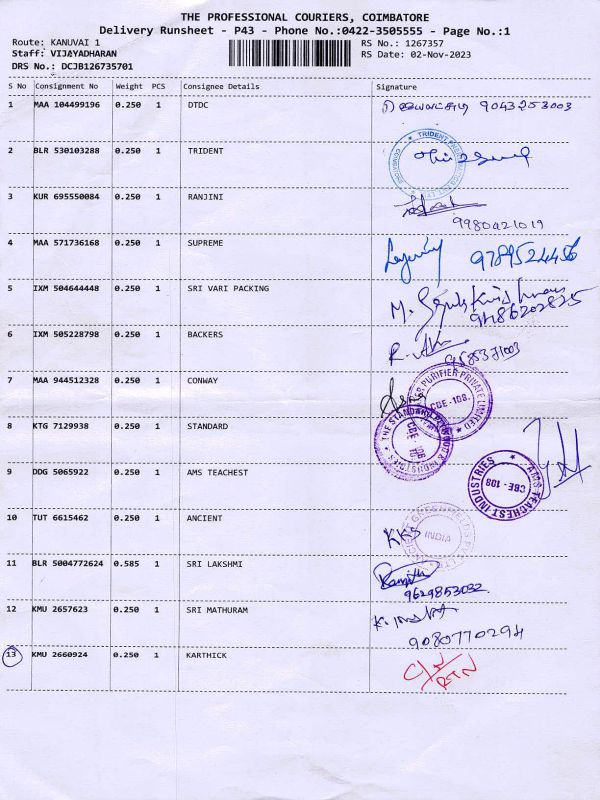 THE PROFESSIONAL COURIERS, COIMBATORE
Delivery Runsheet - P43 - Phone No.:0422-3505555 - Page No.:1
Route: KANUVAI 1 RS No.: 1267357
Staff: VIJAYADHARAN RS Date: 02-Nov-2023
DRS No.: DCJB126735701
S No Consignment No Weight PCS Consignee Details Signature
1 MAA 104499196 0.250 1 DTDC 9043253003
2 BLR 530103288 0.250 1 TRIDENT
3 KUR 695550084 0.250 1 RANJINI
9980421019
4 MAA 571736168 0.250 1 SUPREME 9789524456
5 IXM 504644448 0.250 1 SRI VARI PACKING M.
9486202825
6 IXM 505228798 0.250 1 BACKERS R.
7 MAA 944512328 0.250 1 CONWAY PURIFIER PRIVATE LIMITED
CBE-108.
8 KTG 7129938 0.250 1 STANDARD THE STANDARD
CBE
9 DDG 5065922 0.250 1 AMS TEACHEST AMS TEACHEST INDUSTRIES
CBE - 108
10 TUT 6615462 0.250 1 ANCIENT KKS INDIA
11 BLR 5004772624 0.585 1 SRI LAKSHMI
9629853032
12 KMU 2657623 0.250 1 SRI MATHURAM
9080770294
13 KMU 2660924 0.250 1 KARTHICK
RTN